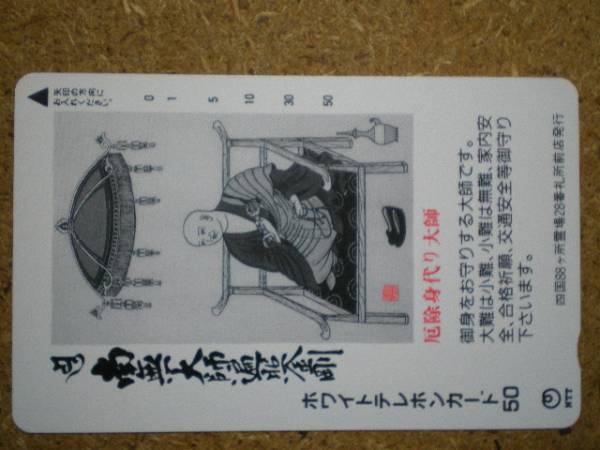 矢印の方向に
お入れください。
0 1 5 10 30 50
南無大師遍照金剛
厄除身代り大師
御身をお守りする大師です。
大難は小難、小難は無難、家内安
全、合格祈願、交通安全等御守り
下さいます。
四国88ヶ所霊場28番札所前店発行
ホワイトテレホンカード50
NTT